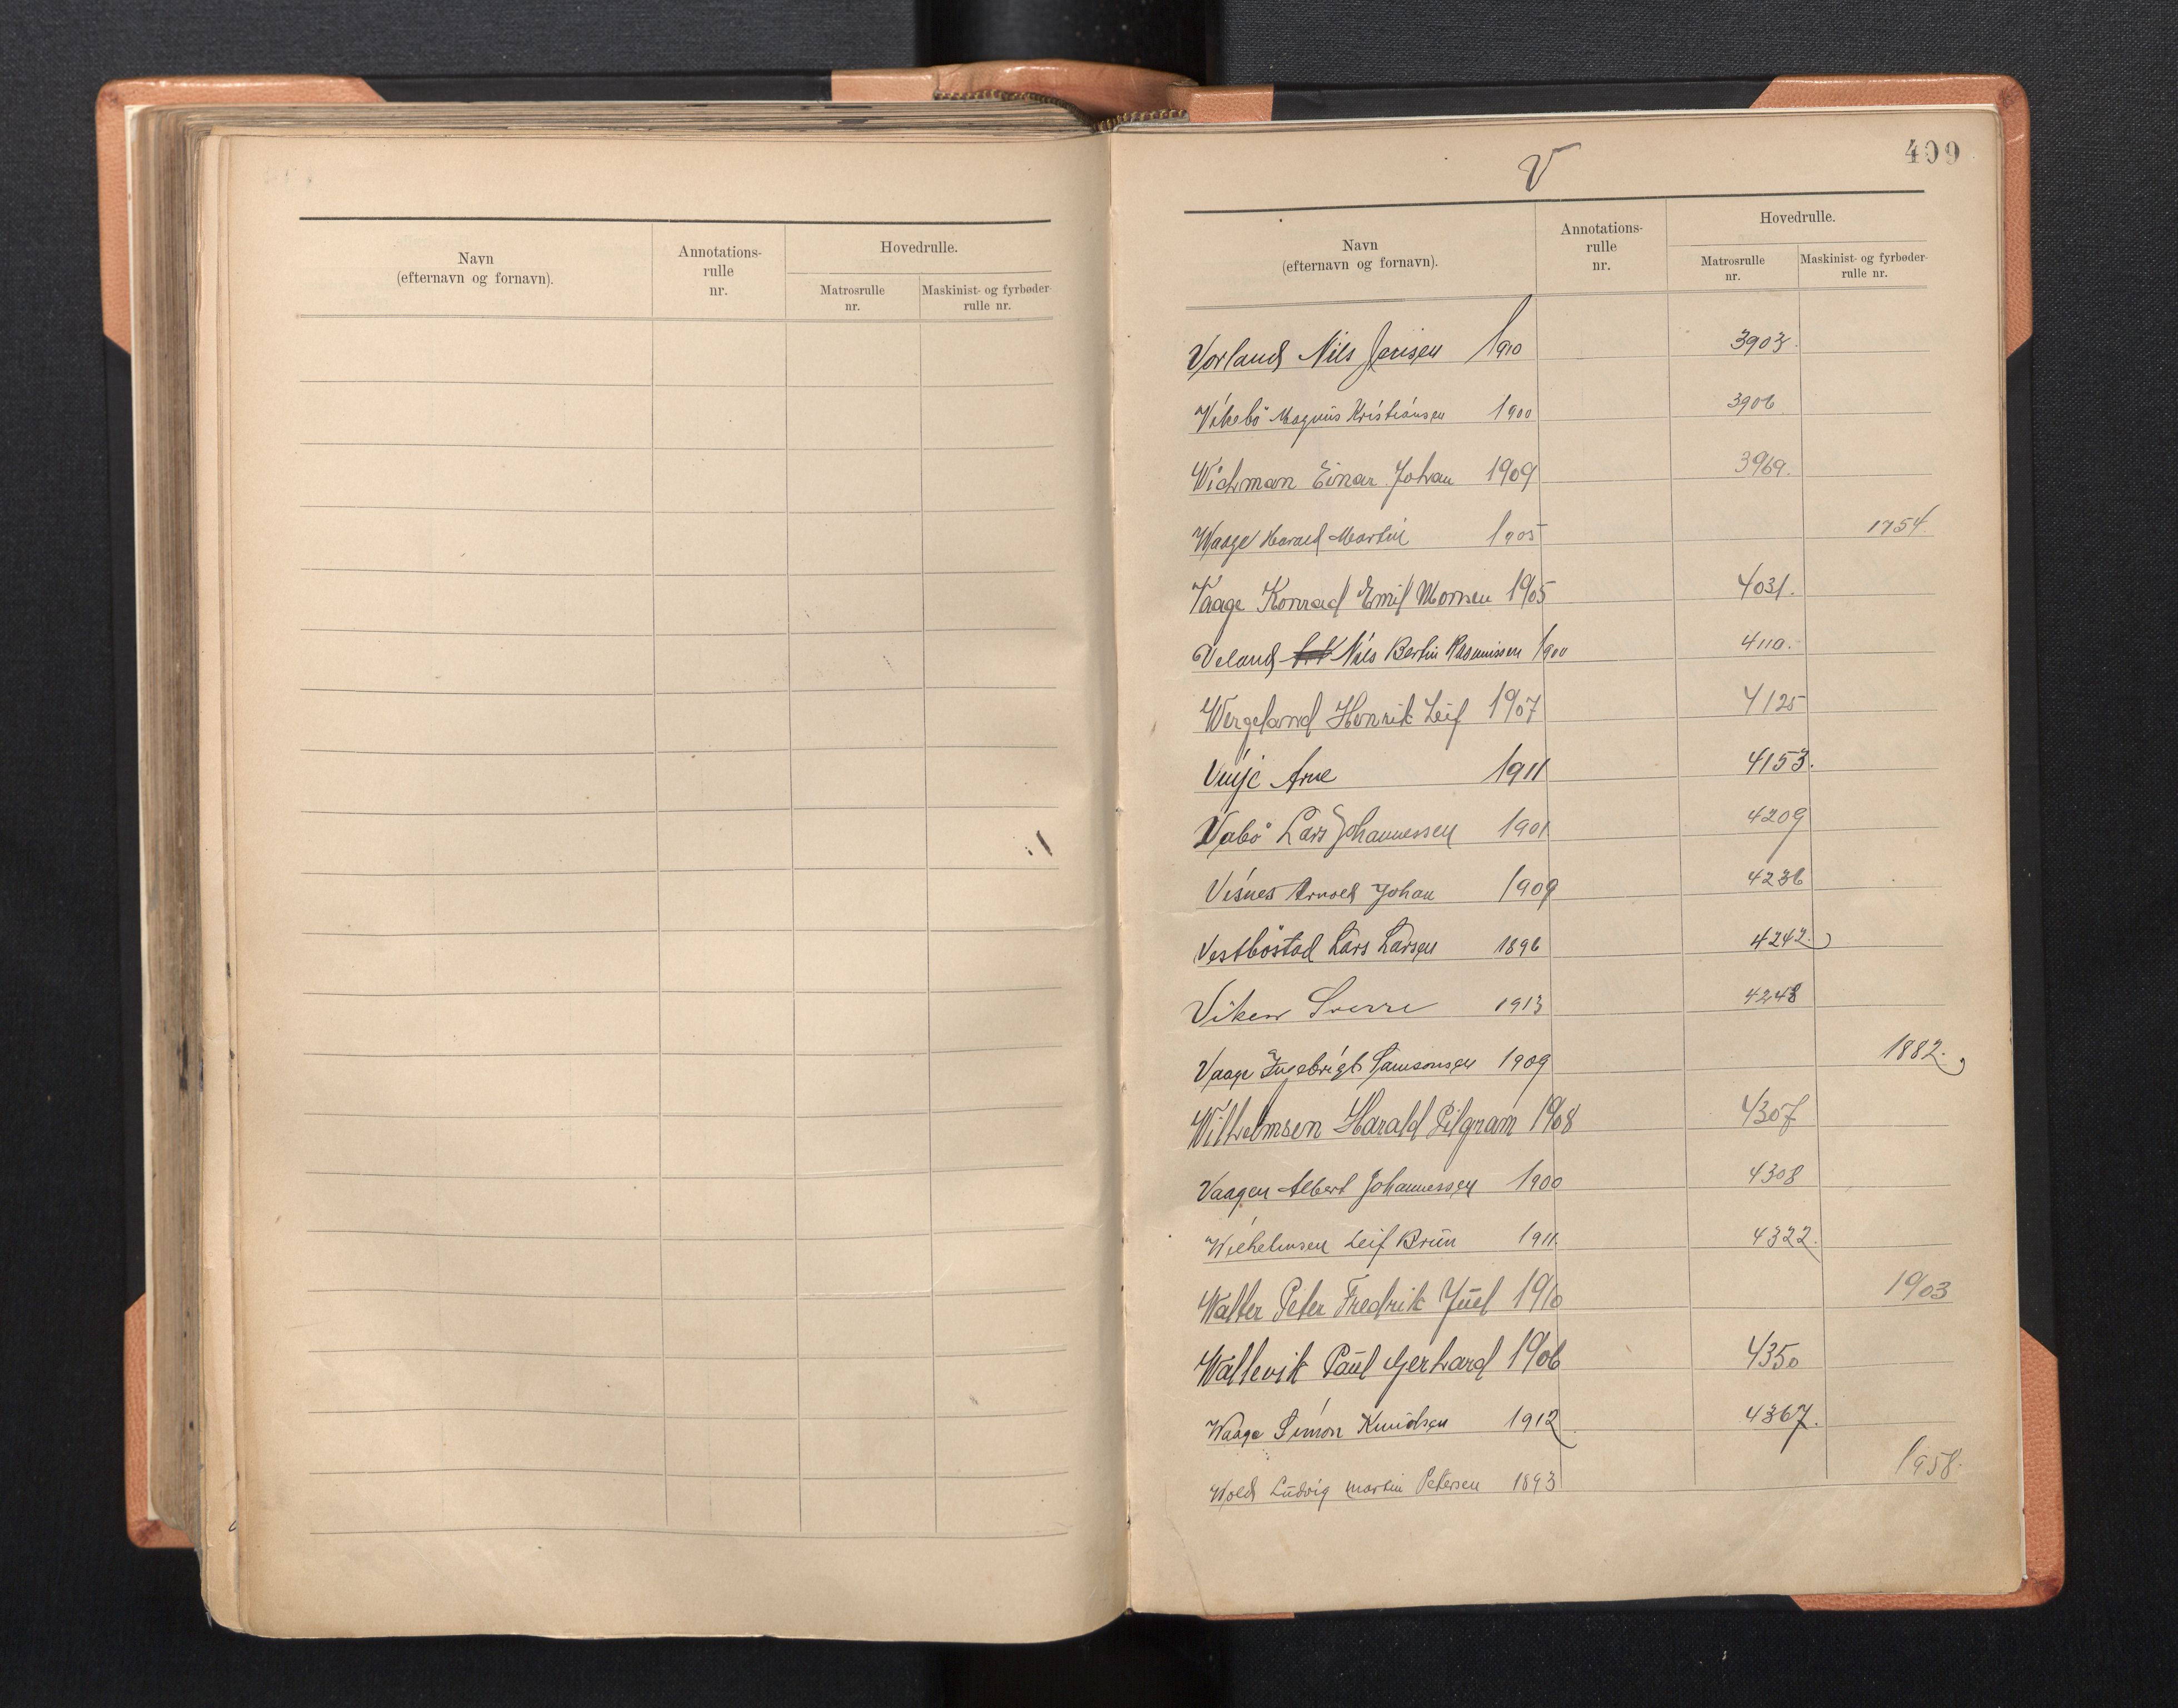 Navn
(efternavn og fornavn).
Annotations-
rulle
nr.
Hovedrulle.
Matrosrulle
nr.
Maskinist- og fyrbøder-
rulle nr.
V
409
Navn
(efternavn og fornavn).
Annotations-
rulle
nr.
Hovedrulle.
Matrosrulle
nr.
Maskinist- og fyrbøder-
rulle nr.
Vorland Nils Jensen 1910 3903.
Vikebö Magnus Kristiansen 1900 3906
Wichman Einar Johan 1909 3969.
Waage Harald Martin 1905 1754.
Vaage Konrad Emil Monsen 1905 4031.
Veland Nils Bertin Rasmussen 1900 4110.
Wergeland Henrik Leif 1907 4125
Vinje Arne 1911 4153.
Vabö Lars Johannessen 1901 4209
Visnes Arnold Johan 1909 4236
Vestböstad Lars Larsen 1896 4242.
Viken Sverre 1913 4248
Vaage Ingebrigt Samsonsen 1909 1882.
Wilhelmsen Harald Pilgram 1908 4307
Vaagen Albert Johannessen 1900 4308
Wilhelmsen Leif Brun 1911. 4322.
Walter Peter Fredrik Juel 1910 1903
Wallevik Paul Gerhard 1906 4350
Waage Simon Knudsen 1912 4367.
Wold Ludvig Martin Petersen 1893 1958.